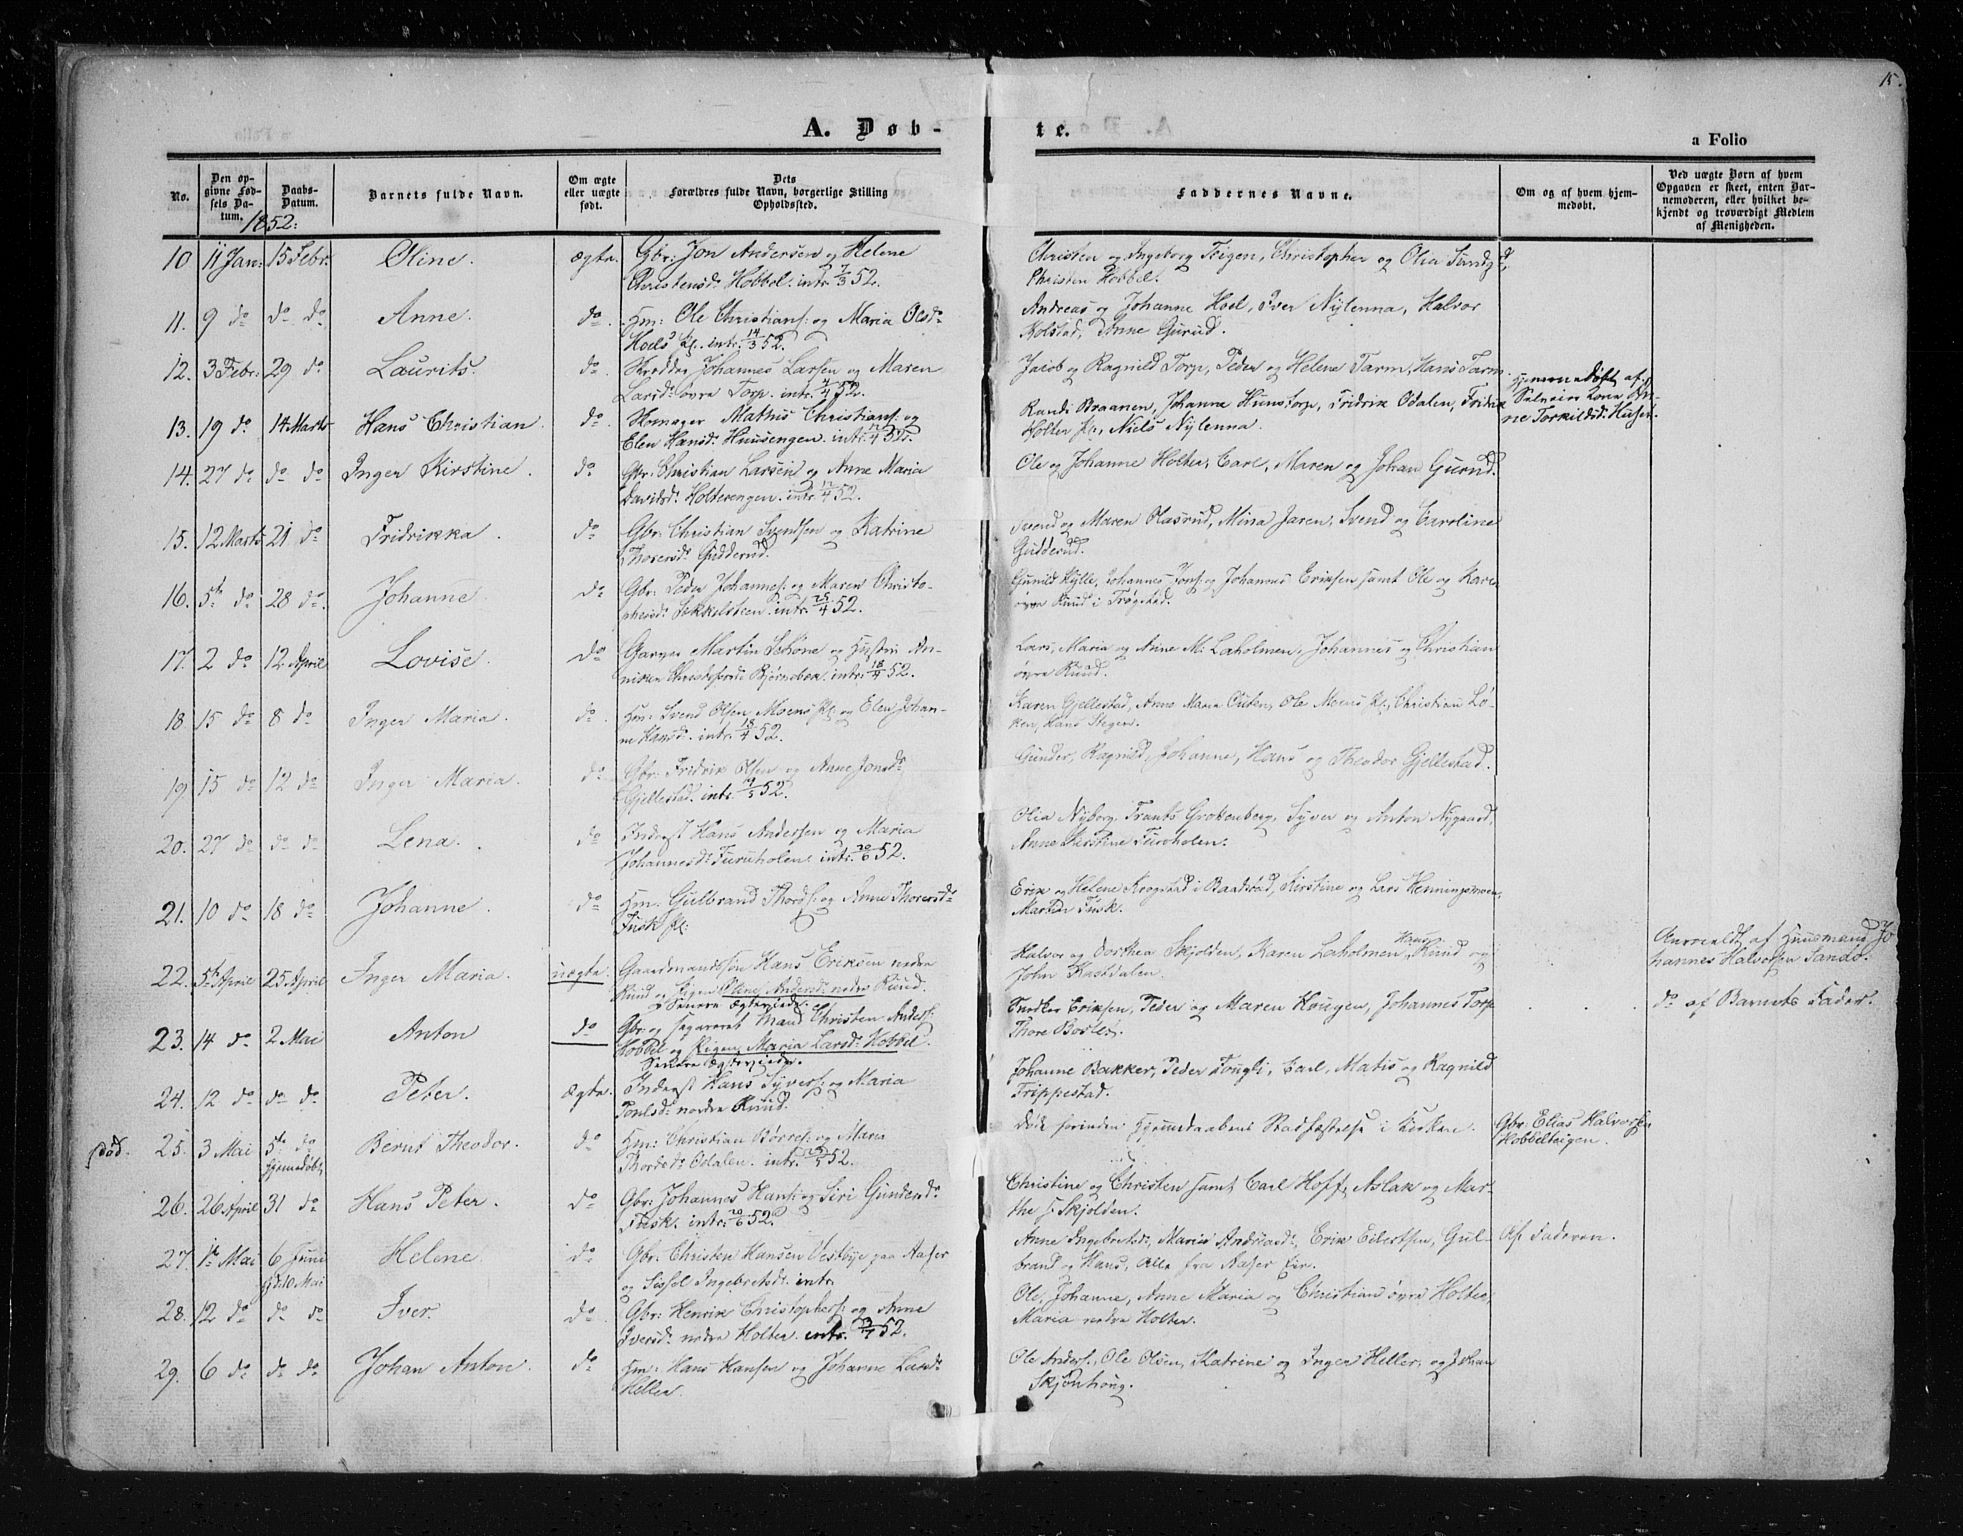 15.
A. Døb-
te.
a Folio
No.
Den op-
givne Fød-
sels Da-
tum.
Daabs-
Datum.
Barnets fulde Navn.
Om ægte
eller uægte
født.
Dets
Forældres fulde Navn, borgerlige Stilling
Opholdssted.
Faddernes Navne.
Om og af hvem hjem-
medøbt.
Ved uægte Børn af hvem
Opgaven er skeet, enten Bar-
nemoderen, eller hvilket be-
kjendt og troværdigt Medlem
af Menigheden.
1852:
10 11 Jan: 15 Febr. Oline. ægte. Gbr: Jon Andersen og Helene
Christensdr Hobbel. intr. 7/3 52.
Christen og Ingeborg Teigen, Christopher og Olea
Christen Hobbel.
11. 9 do do do Anne. do. Hm: Ole Christians: og Maria Olsdr
Hoels Pl. intr. 14/3 52.
Andreas og Johanne Hoel, Iver Nylenna, Halvor
Kolstad, Anne Gurud.
12. 3 Febr: 29 do Laurits. do. Skrædder Johannes Larsen og Maren
Larsdr øvre Torp. intr. 52.
Jacob og Ragnild Torp, Peder og Helene Tarm, Hans Tarm
13. 19 do 14 Marts Hans Christian. do. Skomager Mathis Christians: og
Elen Hansdr Huusengen. intr. 52.
Randi Braanen, Johanna Hunstorp, Fridrik Odalen, Fridrik
Holter Pl., Niels Nylenna.
Hjemmedøbt af
14. 27 do do do Inger Kirstine. do Gbr: Christian Larsen og Anne Maria
Davidsdr Holterengen. intr. 12/4 52.
Ole og Johanne Holter, Carl, Maren og Johan Gurud.
15. 12 Marts 21 do Fridrikka. do Gbr: Christian Svendsen og Katrine
Thorersdr Gudderud.
Svend og Maren Olasrud, Mina Jaren, Svend og Caroline
Gudderud.
16. 5te do 28 do. Johanne. do Gbr: Peder Johannes: og Maren Christo-
phersdr Sekkelsteen. intr. 25/4 52.
Gunild Kylle, Johannes og Johannes Eriksen samt Ole og Karen
øvre Ruud i Trøgstad.
17. 2 do 12 April Lovise. do Garver Martin Schøne og Hustru An-
niken Bjørnebek. intr. 18/4 52.
Lars, Maria og Anne M. Laholmen, Johannes og Christian
øvre Ruud.
18 15 do 8 do Inger Maria. do. Hm: Svend Olsen Moens Pl. og Elen Johan-
ne Hansdr. intr. 18/4 52.
Karen Gjellestad, Anne Maria Outen, Ole Moens Pl., Christian Lø-
ken, Hans Stegen.
19 15 do 12 do Inger Maria. do Gbr: Fridrik Olsen og Anne Jonsdr
Gjellestad. intr. 52.
Gunder, Ragnild, Johanne, Hans og Theodor Gjellestad.
20. 27 do do do Lena. do Inderst Hans Andersen og Maria
Johannesdr Furuholen. intr. 20/6 52.
Olia Nyborg, Frants Grokenberg, Syver og Anton Nygaard,
Anne Kirstine Furoholen.
21. 10 do 18 do Johanne. do Hm: Gulbrand Thords: og Anne Thorersdr
Fusk Pl.
Erik og Helene Krogstad i Baastad, Kirstine og Lars Henningsmoen,
Martin Fusk.
22. 5te April 25 April Inger Maria. uægte. Gaardmandssøn Hans Eriksen nedre
Ruud og Pigen Oline Andersdr nedre Ruud.
Senere Ægteviede.
Halvor og Dorthea Skjolden, Karen Laholmen, Hans Ruud og
John Kastdalen.
Anmeldt af Huusmand Jo-
hannes Halvorsen Sando.
23. 14 do 2 Mai Anton do Gbr: og separeret Mand Christen Anders:
Hobbel og Pigen Maria Larsdr Hobbel.
Senere Ægteviede.
Eriksen, Peder og Maren Haugen, Johannes Torp
Thore Bosled.
do af Barnets Fader.
24. 12 do do do Peter. ægte. Inderst Hans Syvers: og Maria
Poulsdr nedre Ruud.
Johanne Bakker, Peder Fougli, Carl, Matis og Ragnild
Trippestad.
død. 25. 3 Mai 5te do
hjemdøbt Bernt Theodor. do Hm: Christian Børres: og Maria
Thordsdr Odalen. intr. 52.
Døde forinden Hjemdaabens Stadfæstelse i Kirken.
Gbr. Elias Halvorsen
Hobbelteigen.
26. 26 April 31 do Hans Peter. do Gbr: Johannes Hans: og Siri Gundersdr
Fusk. intr. 20/6 52.
Christine og Christen samt Carl Hoff, Aslak og Mar-
the S. Skjolden.
27. 1te Mai 6 Juni
hjd: 10 Mai Helene. do Gbr: Christen Hansen Vestbye paa Aaser
og Sissel Ingebretsdr. intr.
Anne Ingebretsdr, Maria Andreasdr, Erik Eilertsen, Gul-
brand og Hans, Alle fra Aaser Eie.
Af Faderen.
28. 12 do do do Iver. do. Gbr: Henrik Christophers: og Anne
Iversdr nedre Holter. intr. 52.
Ole, Johanne, Anne Maria og Christian øvre Holter,
Maria nedre Holter.
29. 6 do do do Johan Anton. do Hm: Hans Hansen og Johanne Larsdr
Heller.
Ole Anders:, Ole Olsen, Katrine og Inger Heller, og Johan
Skjønhaug.